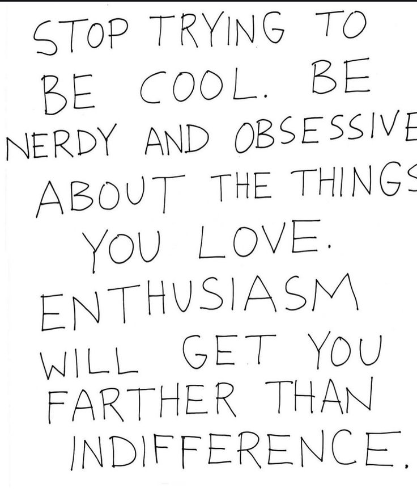 STOP TRYING TO
BE COOL. BE
NERDY AND OBSESSIVE
ABOUT THE THINGS
YOU LOVE.
ENTHUSIASM
WILL GET YOU
FARTHER THAN
INDIFFERENCE.